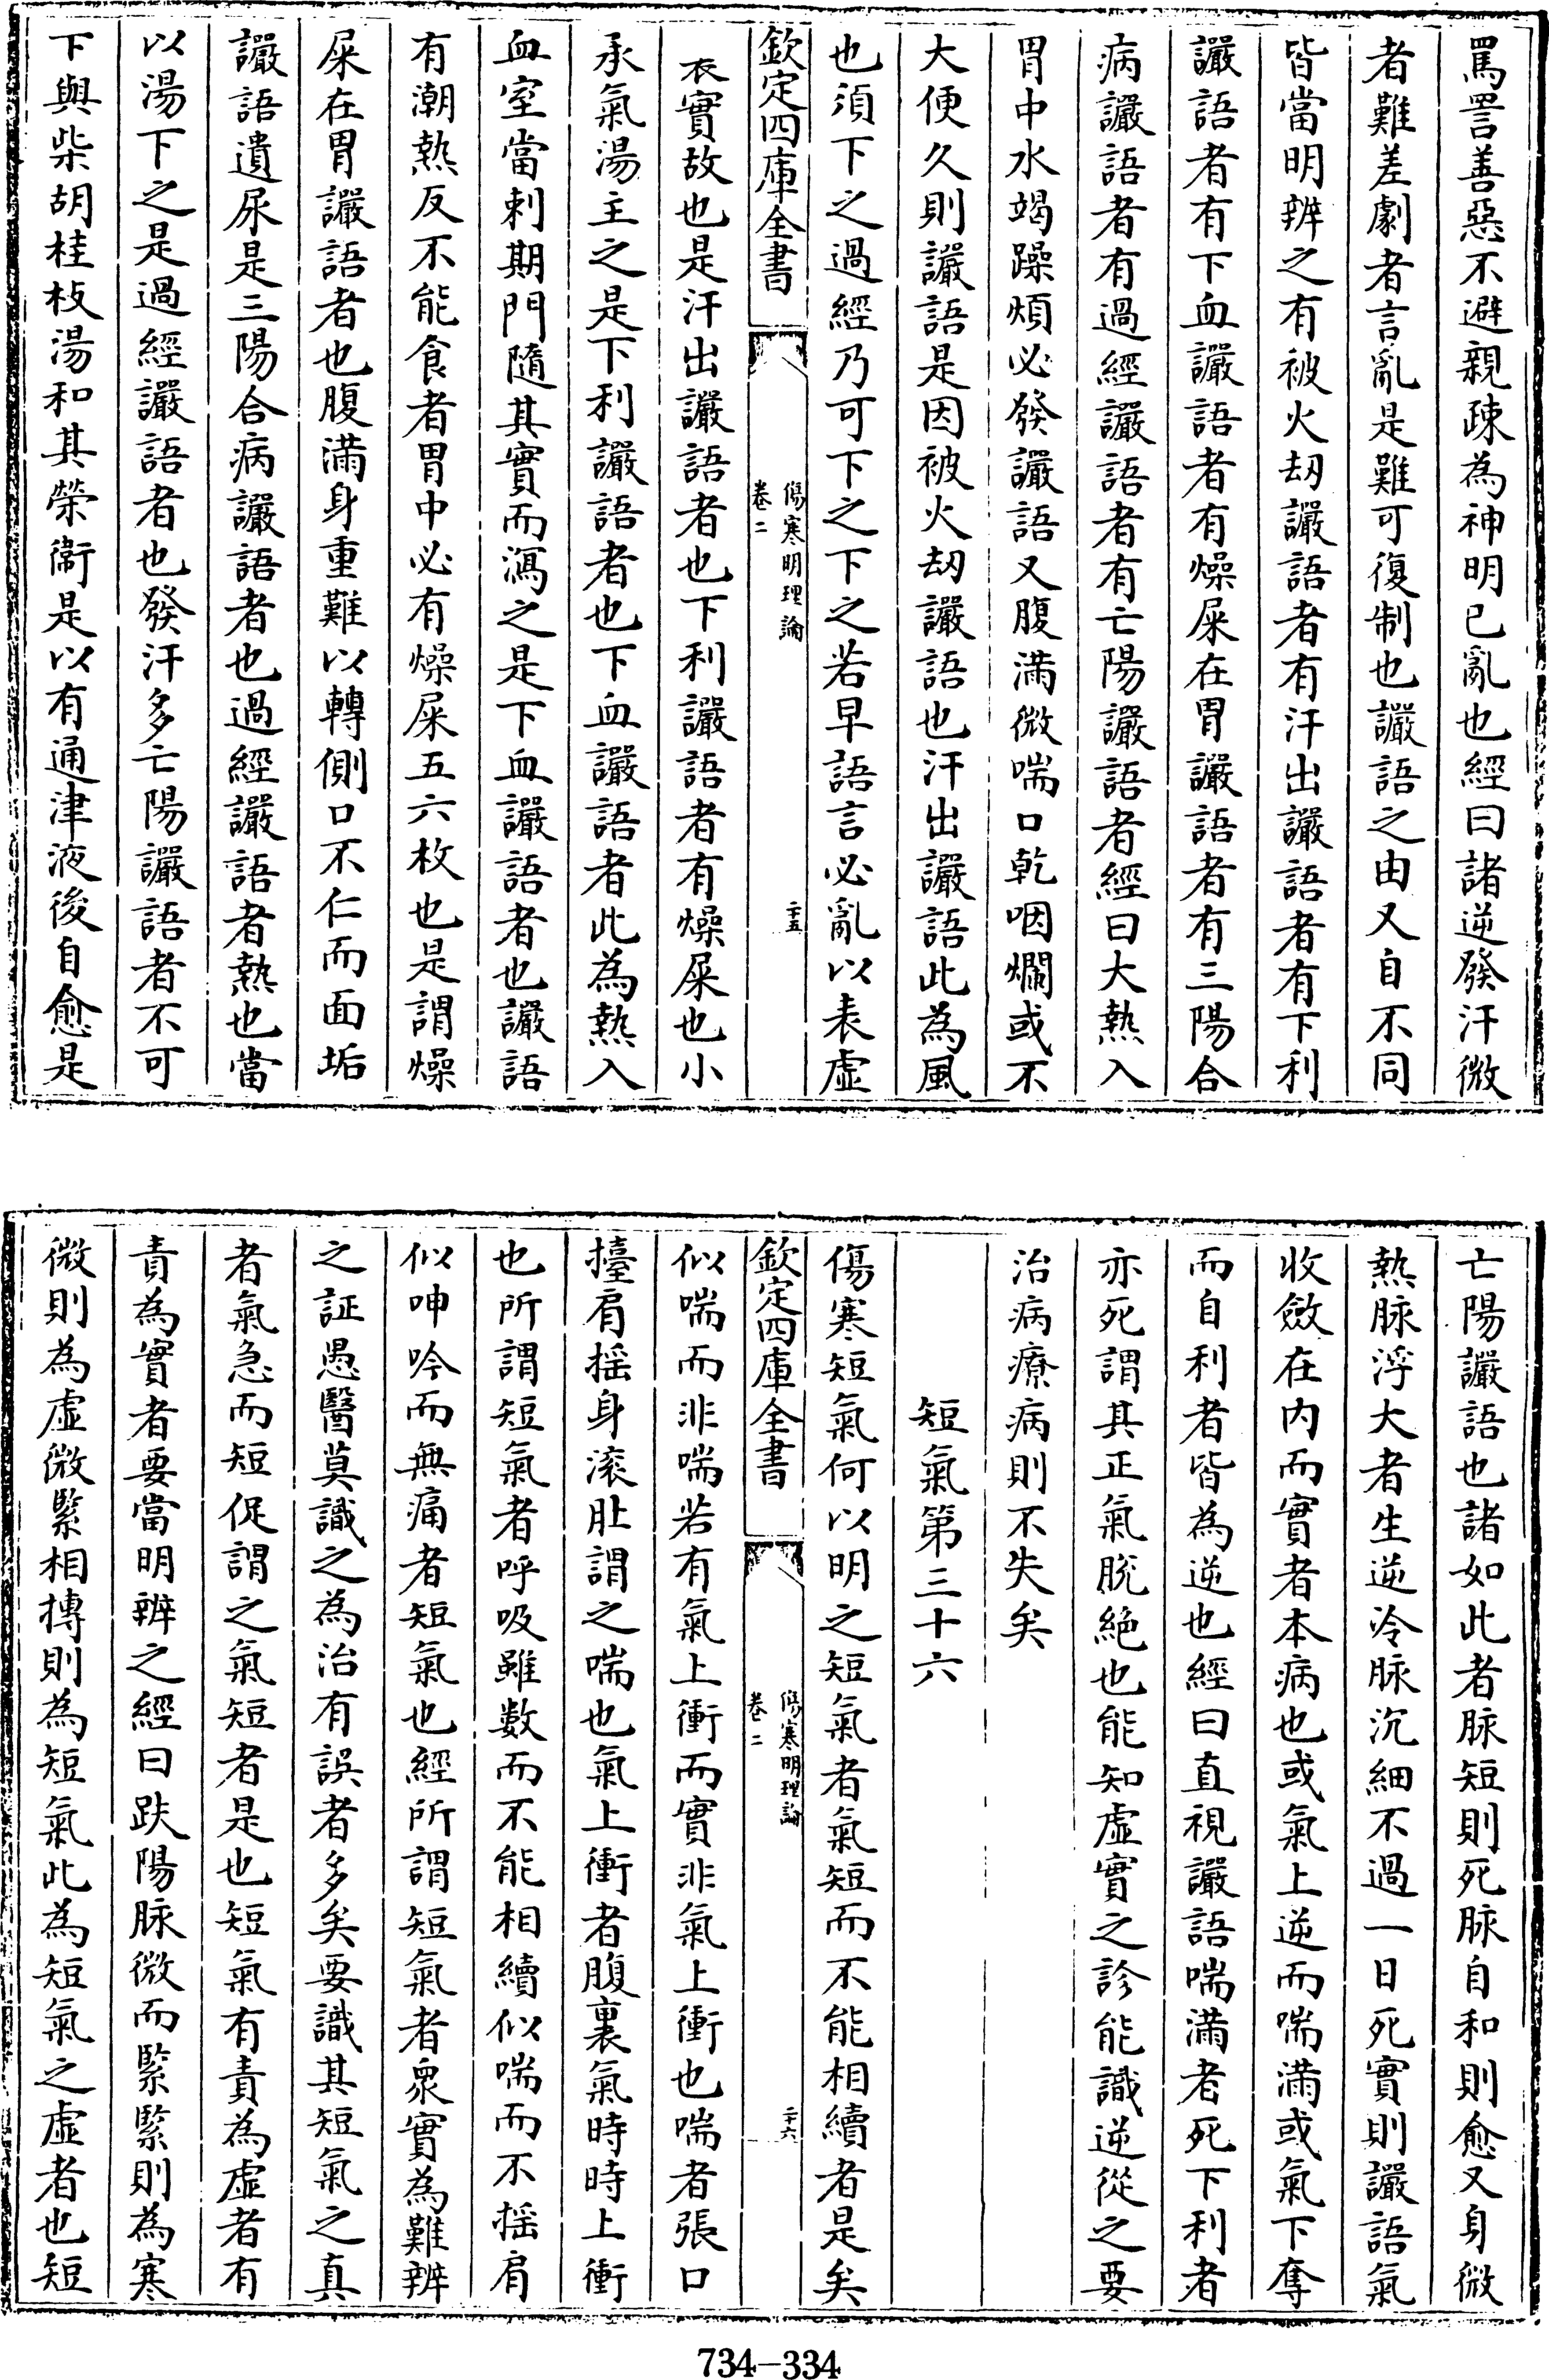 罵詈善惡不避親疎為神明已亂也經曰諸逆發汗微
者難差劇者言亂是難可復制也讝語之由又自不同
皆當明辨之有被火刼讝語者有汗出讝語者有下利
讝語者有下血讝語者有燥屎在胃讝語者有三陽合
病讝語者有過經讝語者有亡陽讝語者經曰大熱入
胃中水竭躁煩必發讝語又腹滿微喘口乾咽爛或不
大便久則讝語是因被火刼讝語也汗出讝語此為風
也須下之過經乃可下之下之若早語言必亂以表虛
欽定四庫全書
傷寒明理論
卷二
二十五
衣實故也是汗出讝語者也下利讝語者有燥屎也小
承氣湯主之是下利讝語者也下血讝語者此為熱入
血室當刺期門隨其實而瀉之是下血讝語者也讝語
有潮熱反不能食者胃中必有燥屎五六枚也是謂燥
屎在胃讝語者也腹滿身重難以轉側口不仁而面垢
讝語遺尿是三陽合病讝語者也過經讝語者熱也當
以湯下之是過經讝語者也發汗多亡陽讝語者不可
下與柴胡桂枝湯和其榮衞是以有通津液後自愈是
亡陽讝語也諸如此者脉短則死脉自和則愈又身微
熱脉浮大者生逆冷脉沉細不過一日死實則讝語氣
收斂在内而實者本病也或氣上逆而喘滿或氣下奪
而自利者皆為逆也經曰直視讝語喘滿者死下利者
亦死謂其正氣脫絕也能知虛實之診能識逆從之要
治病療病則不失矣
短氣第三十六
傷寒短氣何以明之短氣者氣短而不能相續者是矣
欽定四庫全書
傷寒明理論
卷二
二十六
似喘而非喘若有氣上衝而實非氣上衝也喘者張口
擡肩揺身滚肚謂之喘也氣上衝者腹裏氣時時上衝
也所謂短氣者呼吸雖數而不能相續似喘而不揺肩
似呻吟而無痛者短氣也經所謂短氣者衆實為難辨
之証愚醫莫識之為治有誤者多矣要識其短氣之真
者氣急而短促謂之氣短者是也短氣有責為虛者有
責為實者要當明辨之經曰趺陽脉微而緊緊則為寒
微則為虛微緊相摶則為短氣此為短氣之虛者也短
734-334